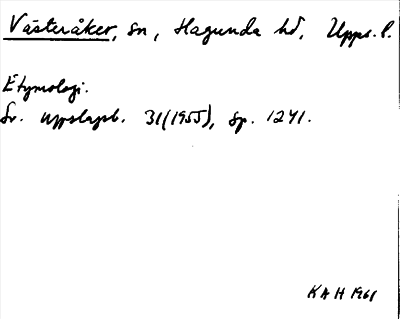 Västeråker, sn, Hagunda hd, Upps. l.
Etymologi.
Sv. uppslagsb. 31(1955), sp. 1241.
KAH 1961